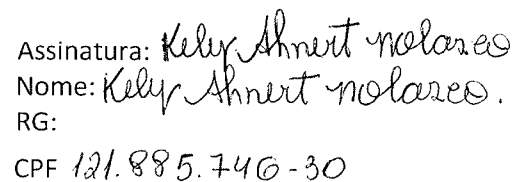 Assinatura: Kely Ahnert Nolasco
Nome: Kely Ahnert Nolasco.
RG:
CPF 121.885.746-30